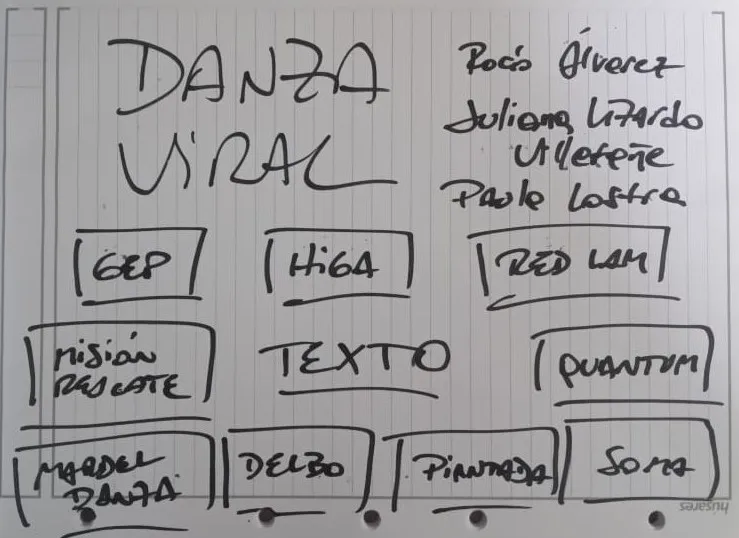 DANZA
VIRAL
Rocío Álvarez
Juliana Lizardo
Villeteñe
Paula Lastra
GEP
HiGA
RED LAM
Misión
RESCATE
TEXTO
QUANTUM
MARDEL
DANZA
DELBO
PiANTADA
SOMA
husares